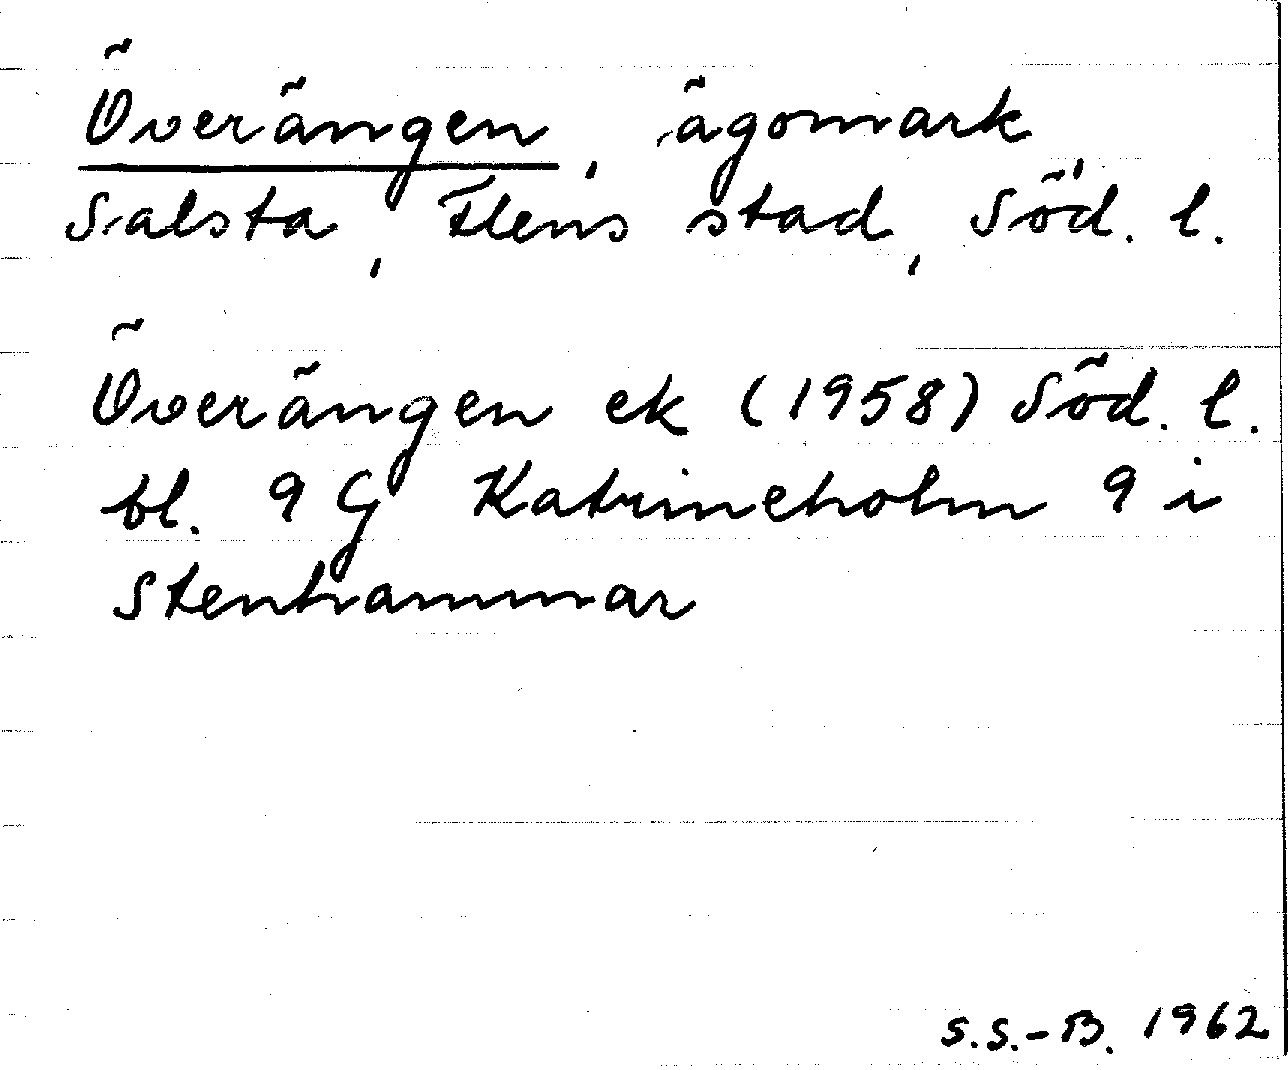 Överängen, ägomark,
Salsta, Flens stad, Söd. l.
Överängen ek (1958) Söd. l.
bl. 9 G Katrineholm 9 i
Stenhammar
S.S.-B. 1962